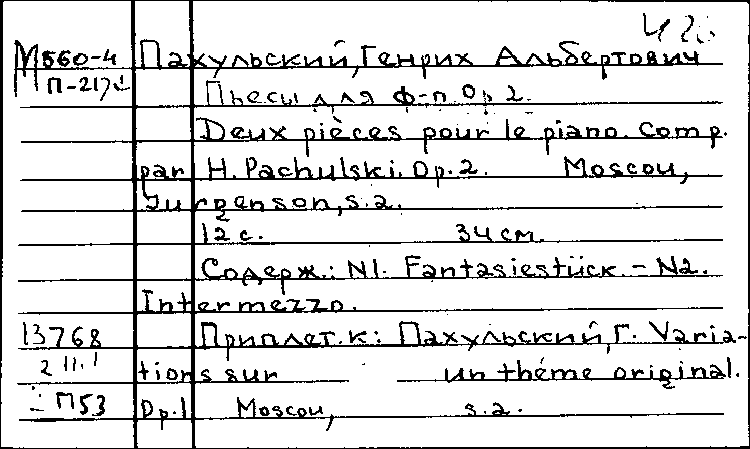 М560-4 Пахульский, Генрих Альбертович
П-217
Пьесы для ф-п. Op 2.
Deux pièces pour le piano. Comp.
par H. Pachulski. Op. 2. Moscou,
Jurgenson, s.a.
12 с. 34 см.
Содерж.: N1. Fantasiestück. - N2.
Intermezzo.
13768 Приплет. к: Пахульский, Г. Varia-
tions sur un théme original.
П53 Op. 1 Moscou, s.a.